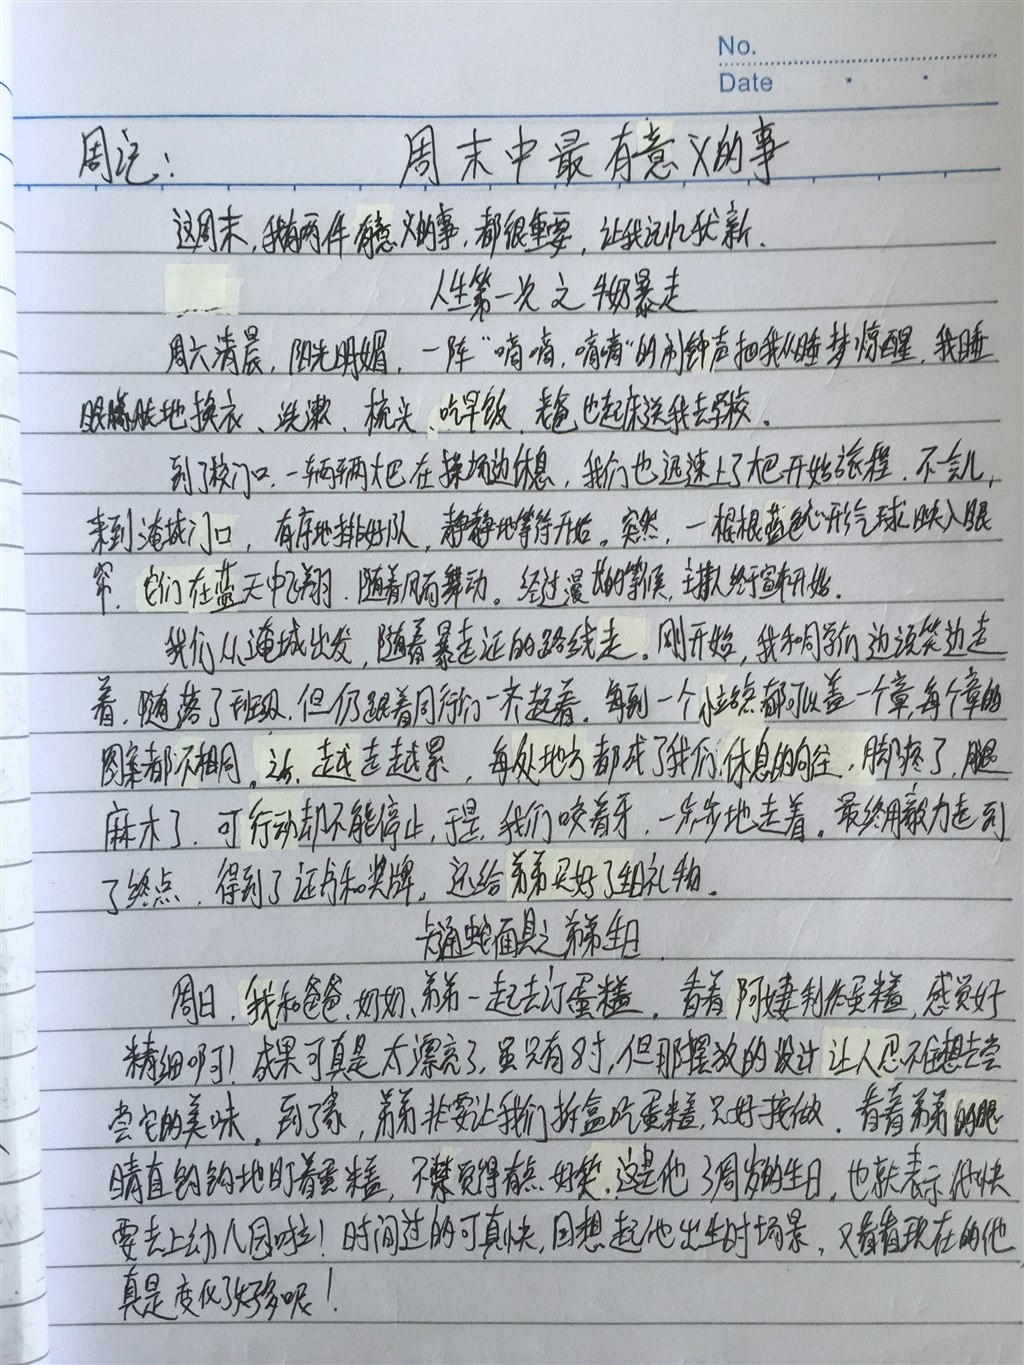 No.
Date
周记: 周末中最有意义的事
这周末,我有两件有意义的事,都很重要,让我记忆犹新.
人生第一次之牛奶暴走
周六清晨,阳光明媚,一阵“嘀嘀,嘀嘀”的闹钟声把我从睡梦惊醒,我睡
眼朦胧地换衣、洗漱、梳头、吃早饭,老爸也起床送我去学校。
到了校门口,一辆辆大巴在操场边休息,我们也迅速上了大巴开始旅程.不会儿,
来到淹城门口,有序地排好队,静静地等待开始。突然,一根根蓝色心形气球映入眼
帘,它们在蓝天中飞翔,随着风而舞动。经过漫长的等候,主持人终于宣布开始.
我们从淹城出发,随着暴走证的路线走。刚开始,我和同学们边说笑边走
着,随落了班级,但仍跟着同行们一齐赶着。每到一个小站点都可以盖一个章,每个章的
图案都不相同。越走越累,每处地方都成了我们休息的向往,脚疼了,腿
麻木了,可行动却不能停止,于是,我们咬着牙,一步步地走着。最终用毅力走到
了终点,得到了证书和奖牌,还给弟弟买好了生日礼物。
卡通蛇面具之弟弟生日
周日,我和爸爸、奶奶、弟弟一起去订蛋糕,看着阿姨制作蛋糕,感觉好
精细啊!成果可真是太漂亮了,虽只有8寸,但那摆放的设计让人忍不住想去尝
尝它的美味。到了家,弟弟非要让我们拆盒吃蛋糕,只好按做.看着弟弟的眼
睛直钩钩地盯着蛋糕,不禁觉得有点好笑.这是他3周岁的生日,也就表示他快
要去上幼儿园啦!时间过的可真快,回想起他出生时场景,又看看现在的他
真是变化了好多呢!